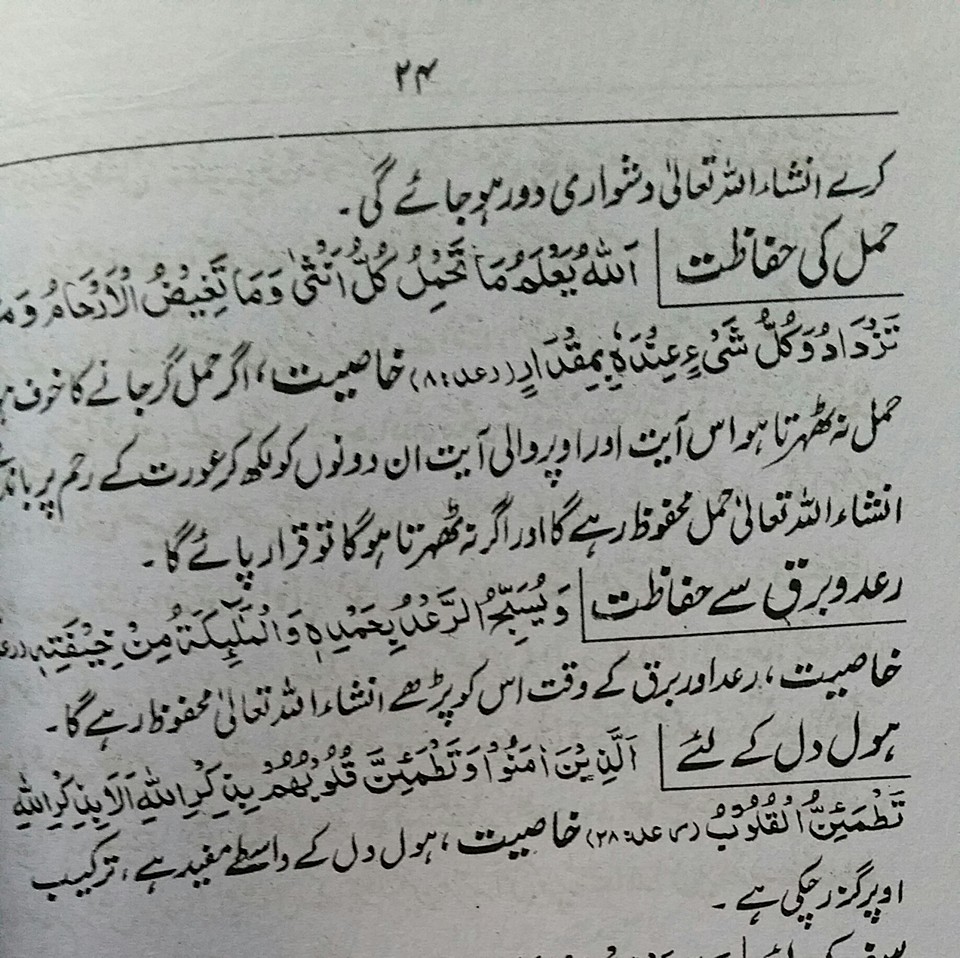 ۲۴
کرے انشاء اللہ تعالیٰ دشواری دور ہو جائے گی ۔
حمل کی حفاظت اَللّٰهُ يَعْلَمُ مَا تَحْمِلُ كُلُّ اُنْثٰى وَمَا تَغِيْضُ الْاَرْحَامُ وَمَا
تَزْدَادُ وَكُلُّ شَىْءٍ عِنْدَهٗ بِمِقْدَارٍ (رعد:۸) خاصیت، اگر حمل گر جانے کا خوف
حمل نہ ٹھہرتا ہو اس آیت اور اوپر والی آیت ان دونوں کو لکھ کر عورت کے رحم پر
انشاء اللہ تعالیٰ حمل محفوظ رہے گا اور اگر نہ ٹھہرتا ہوگا تو قرار پائے گا ۔
رعد و برق سے حفاظت وَيُسَبِّحُ الرَّعْدُ بِحَمْدِهٖ وَالْمَلٰٓئِكَةُ مِنْ خِيْفَتِهٖ
خاصیت، رعد اور برق کے وقت اس کو پڑھے انشاء اللہ تعالیٰ محفوظ رہے گا۔
ہول دل کے لئے اَلَّذِيْنَ اٰمَنُوْا وَتَطْمَئِنُّ قُلُوْبُهُمْ بِذِكْرِ اللّٰهِ اَلَا بِذِكْرِ اللّٰهِ
تَطْمَئِنُّ الْقُلُوْبُ (رعد:۲۸) خاصیت، ہول دل کے واسطے مفید ہے، ترکیب
اوپر گزر چکی ہے ۔